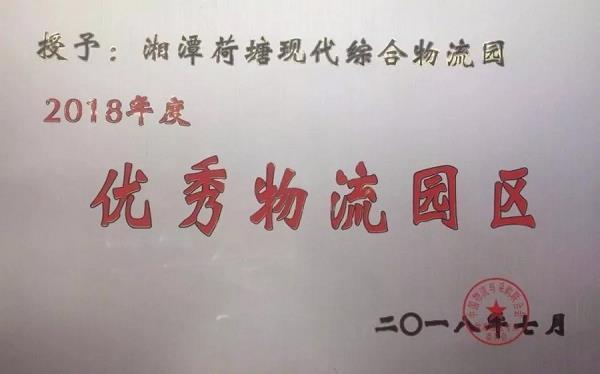 授予：湘潭荷塘现代综合物流园
2018年度
优秀物流园区
二〇一八年七月